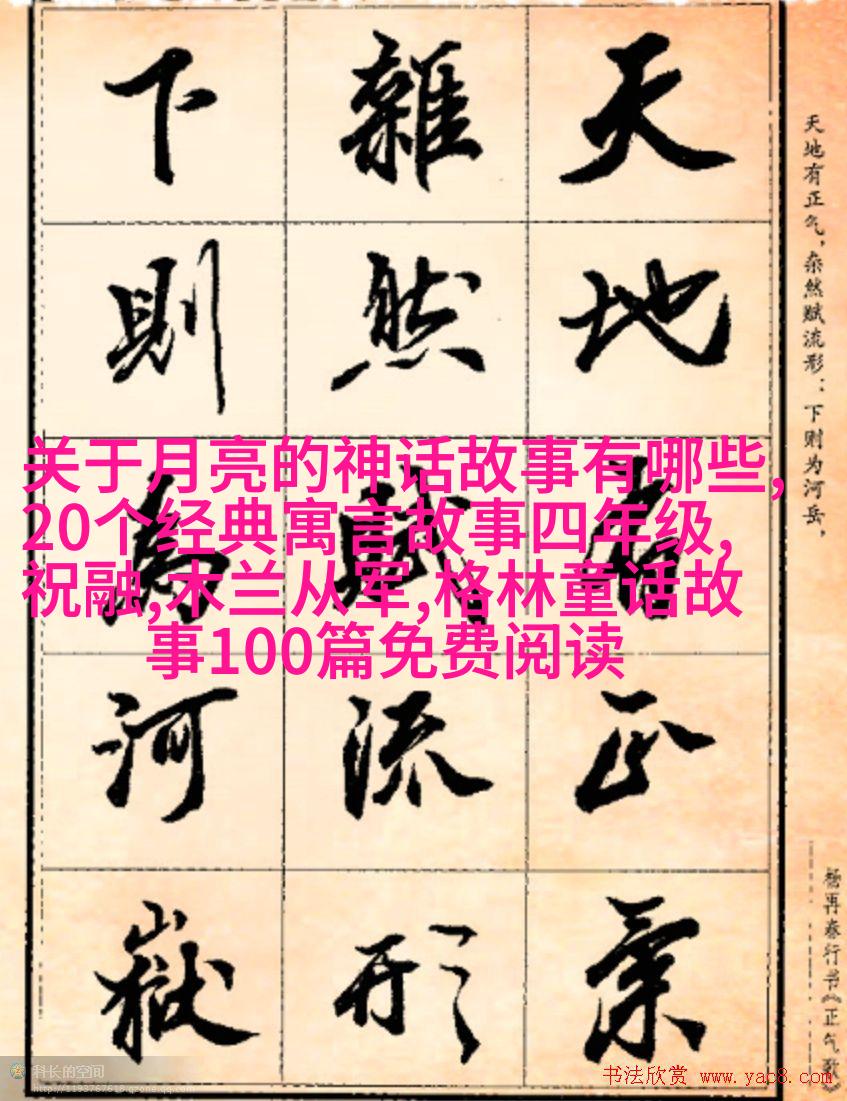 天地有正氣
雜然賦流形
下則為河嶽
天地有正气，杂然赋流形：下则为河岳，
杨再春行书《正气歌》
关于月亮的神话故事有哪些,
20个经典寓言故事四年级,
祝融,木兰从军,格林童话故
事100篇免费阅读
科长的空间
http://1193767618.qzone.qq.com
书法欣赏 www.yac8.com